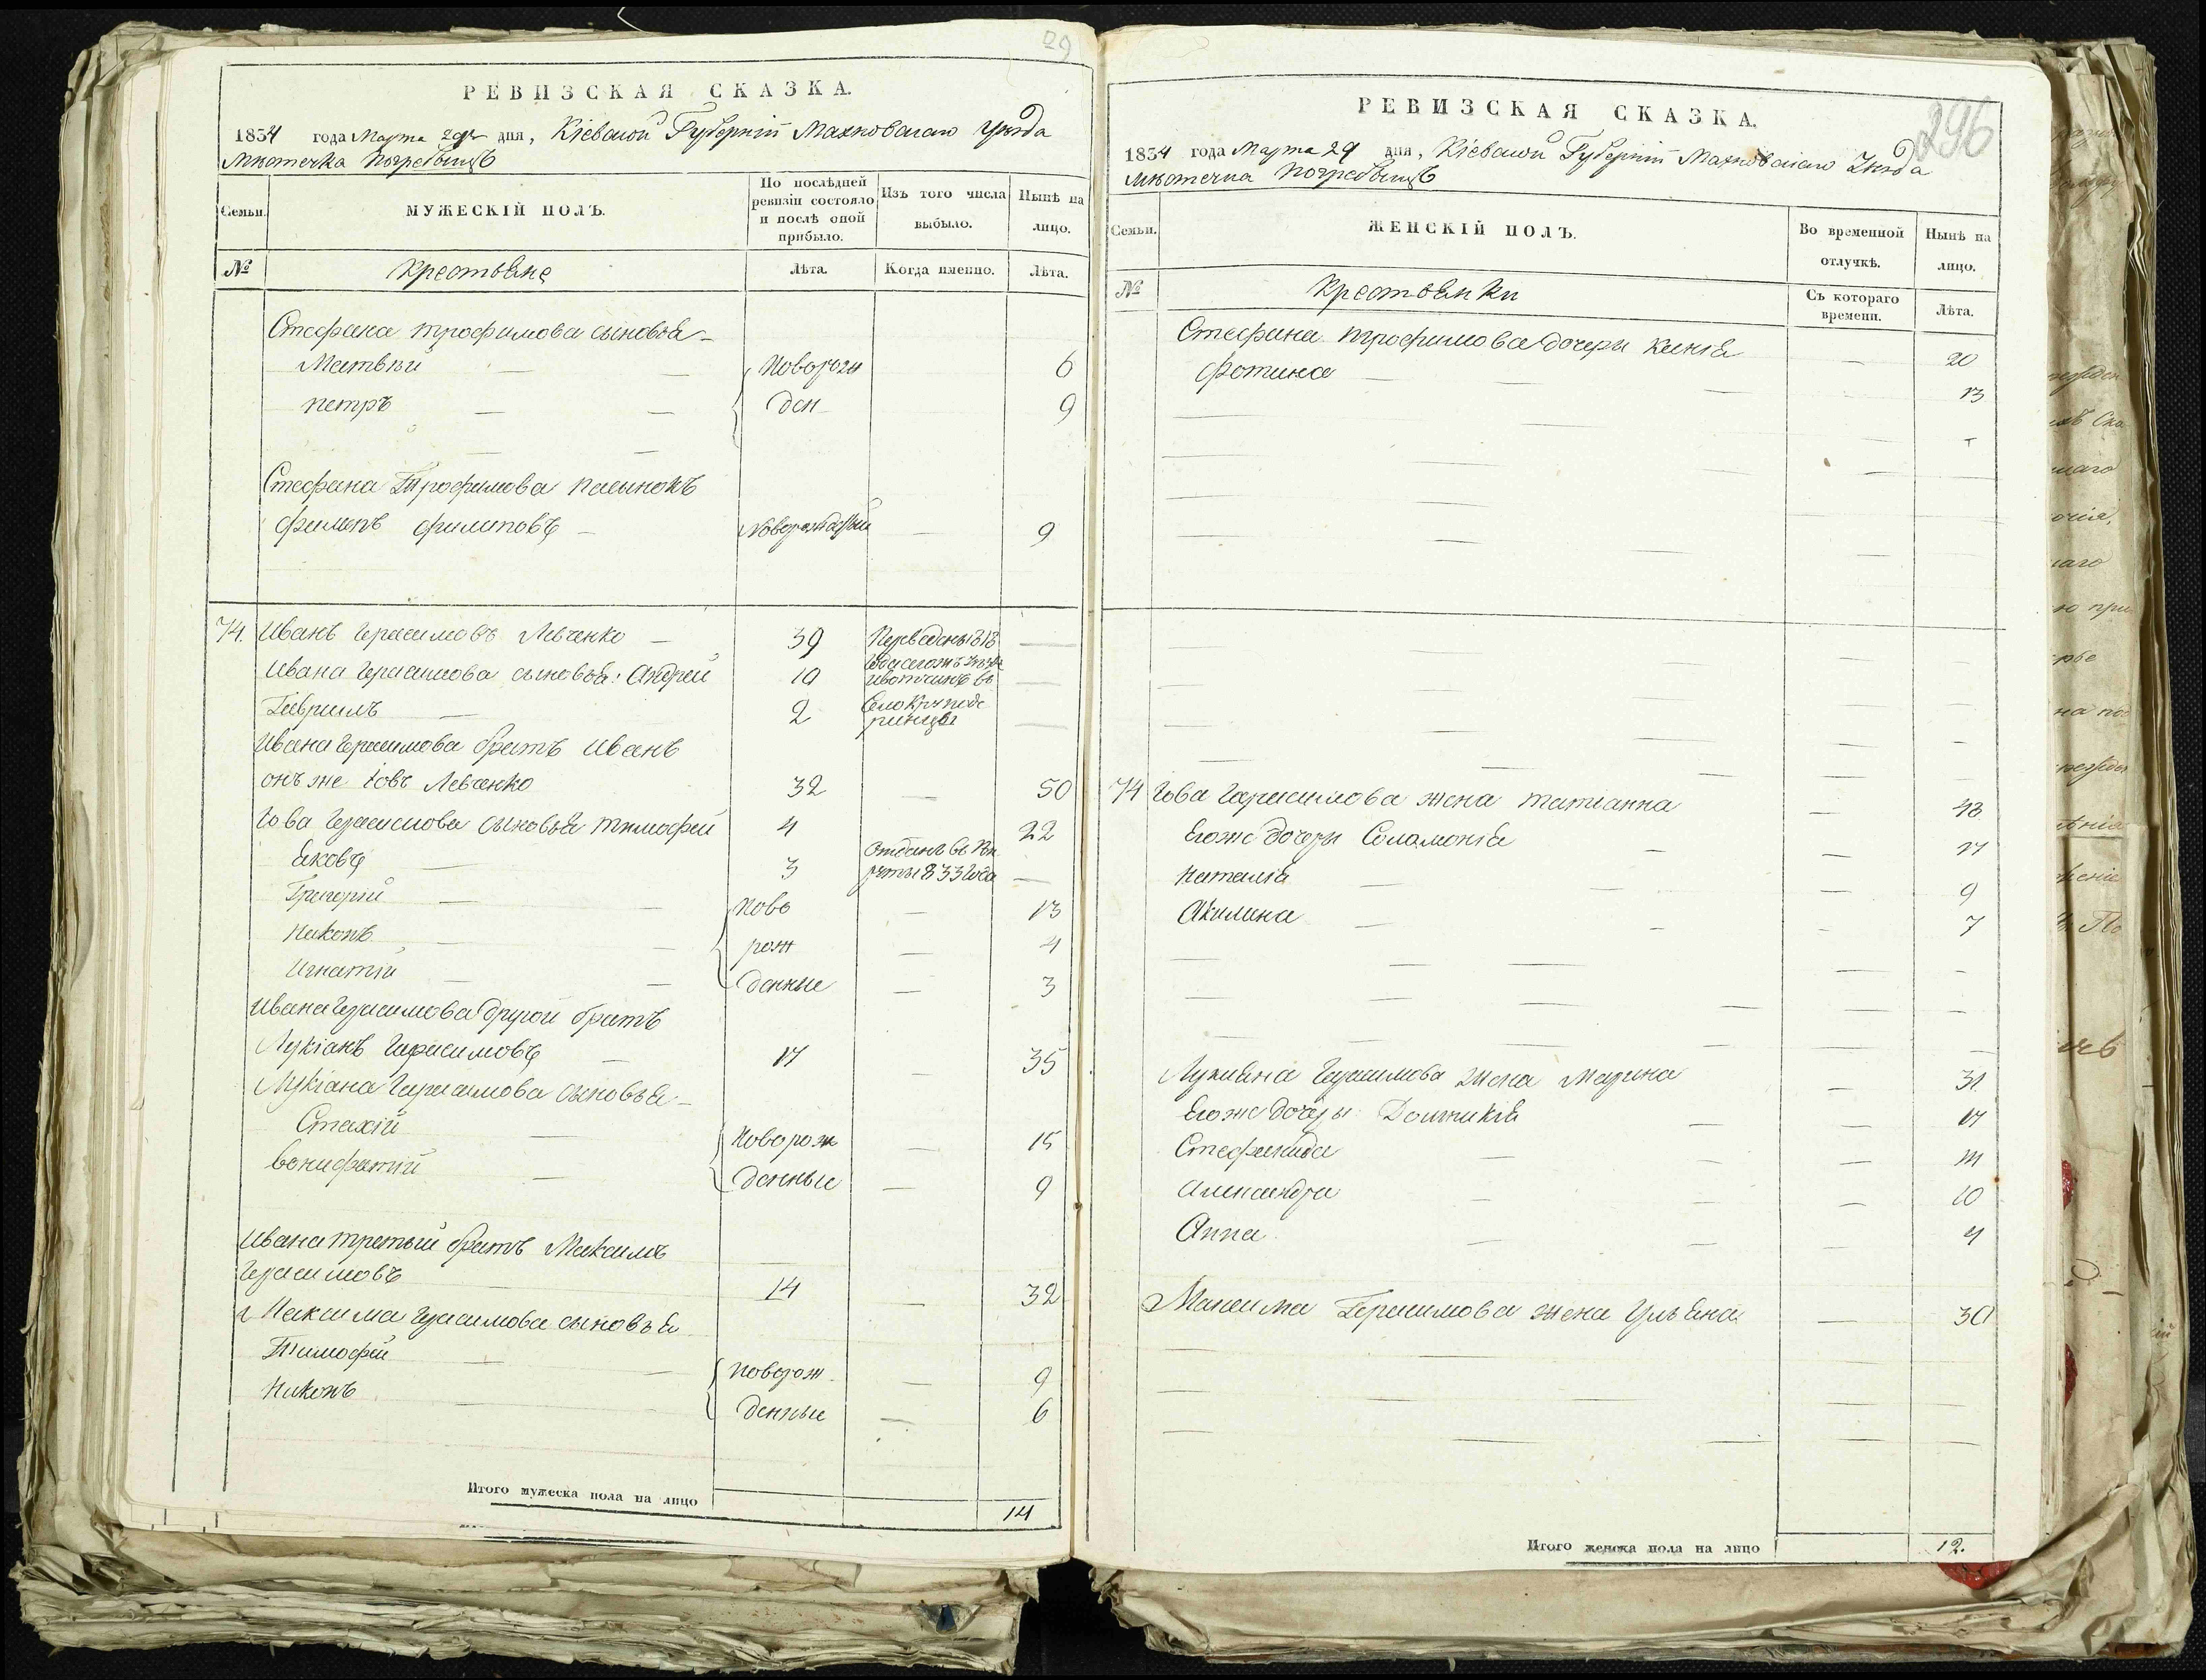 29
РЕВИЗСКАЯ СКАЗКА.
1834 года Марта 29 дня, Кіевской Губерніи Махновскаго Уезда
Местечка Погребищъ
Семьи.
МУЖЕСКІЙ ПОЛЪ.
По послѣдней ревизіи состояло и послѣ оной прибыло.
Изъ того числа выбыло.
Нынѣ на лицо.
№
Крестьяне
Лѣта.
Когда именно.
Лѣта.
Стефана Трофимова сыновья
Матвѣй Новорож 6
Петръ ден 9
Стефана Трофимова пасынокъ
Филипъ Филиповъ Новорожденый 9
74. Иванъ Герасимовъ Левченко 39 Переведены 818
Ивана Герасимова сыновья: Андрей 10
Гаврилъ 2 Село
Ивана Герасимова братъ Иванъ
онъ же Іовъ Левченко 32 50
Іова Герасимова сыновья Тимофей 4 22
Яковъ 3 Отданъ въ 833 года
Григорій Ново 13
Никонъ рож 4
Игнатій денные 3
Ивана Герасимова другой братъ
Лукіанъ Герасимовъ 17 35
Лукіана Герасимова сыновья
Стахій Новорож 15
Вонифатій денные 9
Ивана третый братъ Максимъ
Герасимовъ 14 32
Максима Герасимова сыновья
Тимофей Новорож 9
Никонъ денные 6
Итого мужеска пола на лицо 14
296
РЕВИЗСКАЯ СКАЗКА.
1834 года Марта 29 дня, Кіевской Губерніи Махновскаго Уезда
Местечка Погребищъ
Семьи.
ЖЕНСКІЙ ПОЛЪ.
Во временной отлучкѣ.
Нынѣ на лицо.
№
Крестьянки
Съ котораго времени.
Лѣта.
Стефана Трофимова дочери Ксенія 20
Фотина 13
74 Іова Герасимова жена Татіанна 48
Егоже дочери Соломонія 17
Наталія 9
Акилина 7
Лукияна Герасимова жена Марина 31
Егоже дочеры 17
Стефанида 14
Александра 10
Анна 4
Максима Герасимова жена Ульяна 30
Итого женска пола на лицо 12.